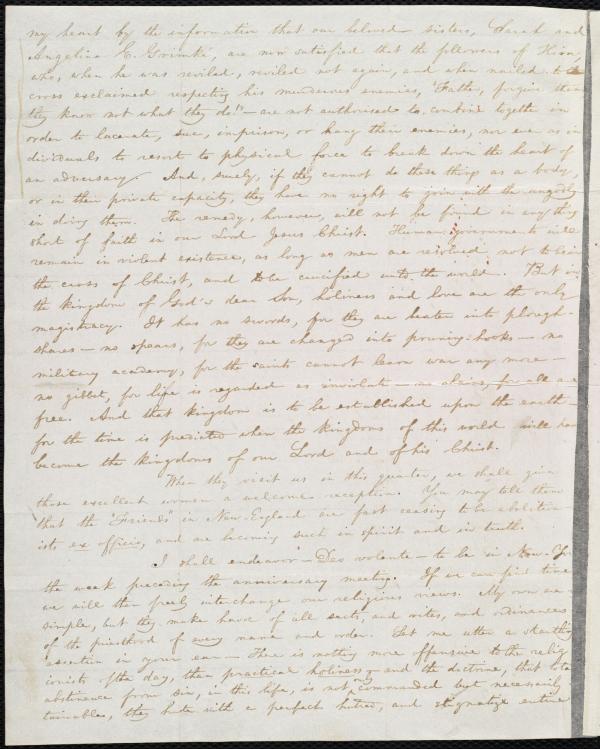 my heart by the information that our beloved sisters, Sarah and
Angelina E. Grimké, are now satisfied that the followers of Him,
who, when he was reviled, reviled not again, and when nailed to the
cross exclaimed respecting his murderous enemies, "Father, forgive them
they know not what they do!" — are not authorised to combine together in
order to lacerate, sue, imprison, or hang their enemies, nor even as in-
dividuals to resort to physical force to break down the heart of
an adversary. And, surely, if they cannot do these things as a body,
or in their private capacity, they have no right to join with the ungodly
in doing them. The remedy, however, will not be found in any thing
short of faith in our Lord Jesus Christ. Human governments will
remain in violent existence, as long as men are resolved not to bear
the cross of Christ, and to be crucified unto the world. But in
the kingdom of God's dear Son, holiness and love are the only
magistracy. It has no swords, for they are beaten into plough-
shares — no spears, for they are changed into pruning-hooks — no
military academy, for the saints cannot learn war any more —
no gibbet, for life is regarded as inviolate — no chains, for all are
free. And that kingdom is to be established upon the earth
for the time is predicted when the kingdoms of this world will have
become the kingdoms of our Lord and of his Christ.
When they visit us in this quarter, we shall give
those excellent women a welcome reception. You may tell them
that the "Friends" in New-England are fast ceasing to be abolition-
ists ex officio, and are becoming such in spirit and in truth.
I shall endeavor — Deo volente — to be in New-Y
the week preceding the anniversary meeting. If we can find time
we will then freely interchange our religious views. My own are
simple, but they make havoc of all sects, and rites, and ordinances
of the priesthood of every name and order. Let me utter a startling
assertion in your ear — There is nothing more offensive to the relig-
ionists of the day, than practical holiness; and the doctrine, that total
abstinence from sin, in this life, is not only commanded but necessarily
tainable, they hate with a perfect hatred, and stigmatize entire